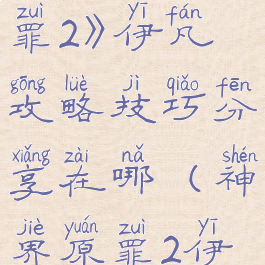 zuì yī fán
罪2》伊凡
gōng lüè jì qiǎo fēn
攻略技巧分
xiǎng zài nǎ shén
享在哪（神
jiè yuán zuì yī
界原罪2伊